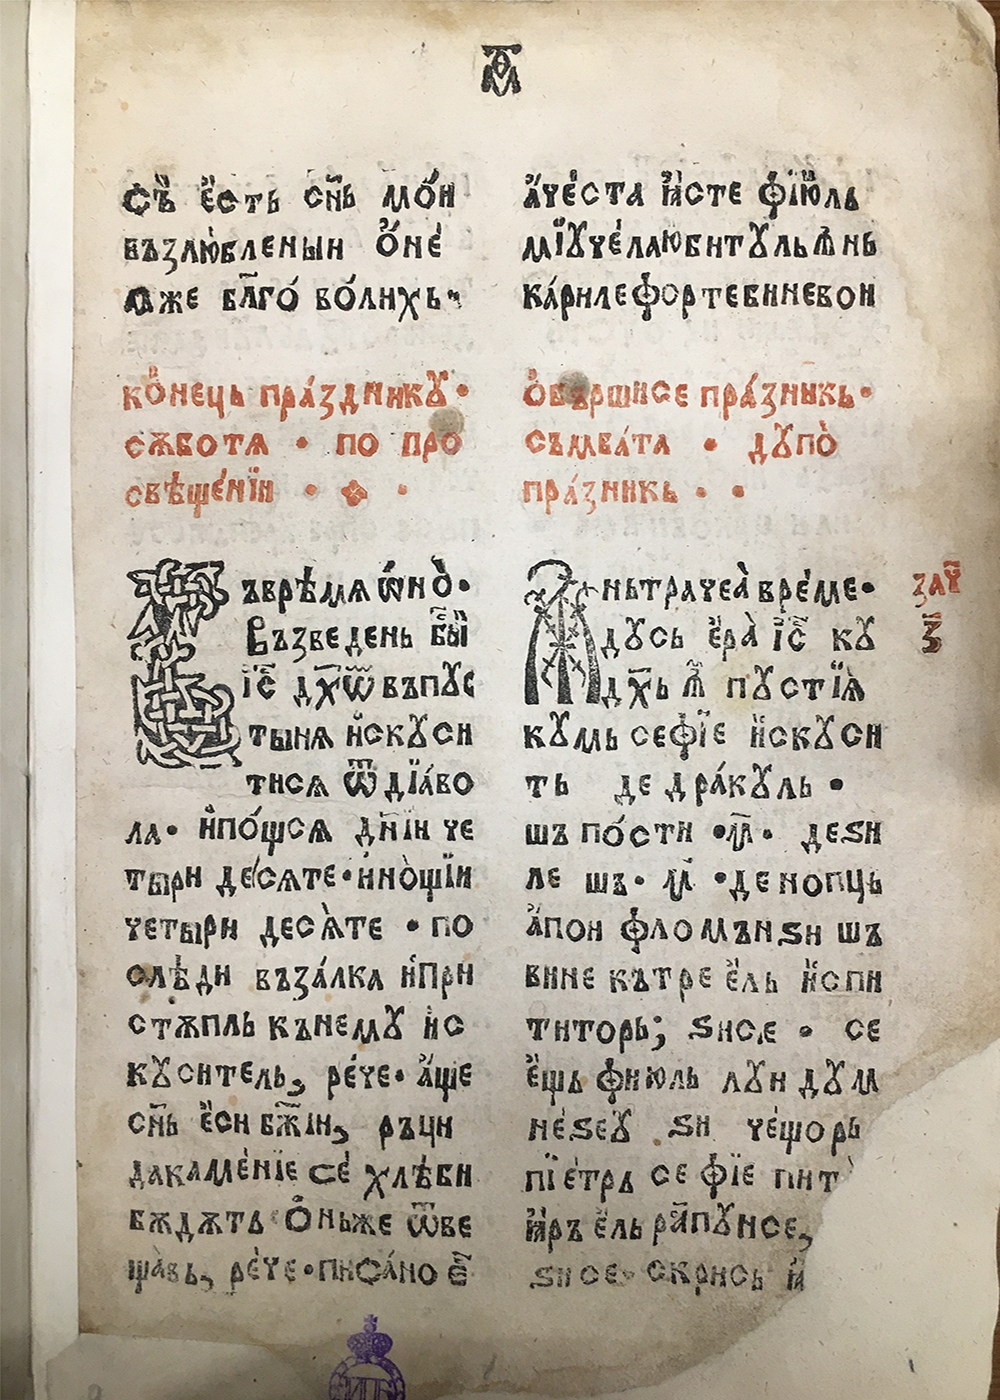 съ̀ е҆́сть сн҃ь мо́и
възлю́бленыи ѻ҆не́
мже бл҃го́ во́лихь·
ко̀нець пра́здникꙋ·
сѫботѧ · по про
свѣще́нїи · ·
Въврѣмѧ ѡ҆́но̀·
Възведень бы́
і҆с҃ дх҃ѡⷮ въпꙋс
тынѧ и҆скꙋси
тисѧ ѿ дїа́во
ла· и҆по́щсѧ дн҃їи че
тыри десѧте·и҆но̀щїи
четыри десѧ̀те · по
слѣди въза́лка и҆при
стѫпль кънемꙋ и҆с
кꙋситель, ре́че· а҆́ще
сн҃ь е҆си бж҃їи, ръци
дакаме́нїе се́ хлѣби
бѫдѫть ѻ҆ньже ѿве
ща̀вь, ре́че·писа́но е҃
а҆че́ста и҆́сте фїю҆ль
мїꙋче́лаюбитꙋльꙟнь
ка́рилефортебиневои
ѻ҆бършисе пра́зникь·
съмба́тѧ · дꙋпо̀
пра́зникь · ·
Аньтрачеа̀ вре́ме·
дꙋсь е҆ра̀ і҆с҃ кꙋ
дх҃ь ꙟ҆ пꙋстїѧ̀
кꙋмь сефі́е и҆скꙋси
ть де дра́кꙋль ·
шъ по́сти ·м҃· деѕи
ле шъ· м҃ ·де нопць
а҆пои фломънѕи шъ
вине кътре е҆ль и҆спи
титорь; ѕисе · се
е҆щь фиюль лꙋи дꙋм
не́ѕеꙋ ѕи че́щорь
пїе́трь се фїе пит
и҆ръ е҆ль ра̀пꙋнсе,
ѕисе· скрись и҆
зач҃
з҃